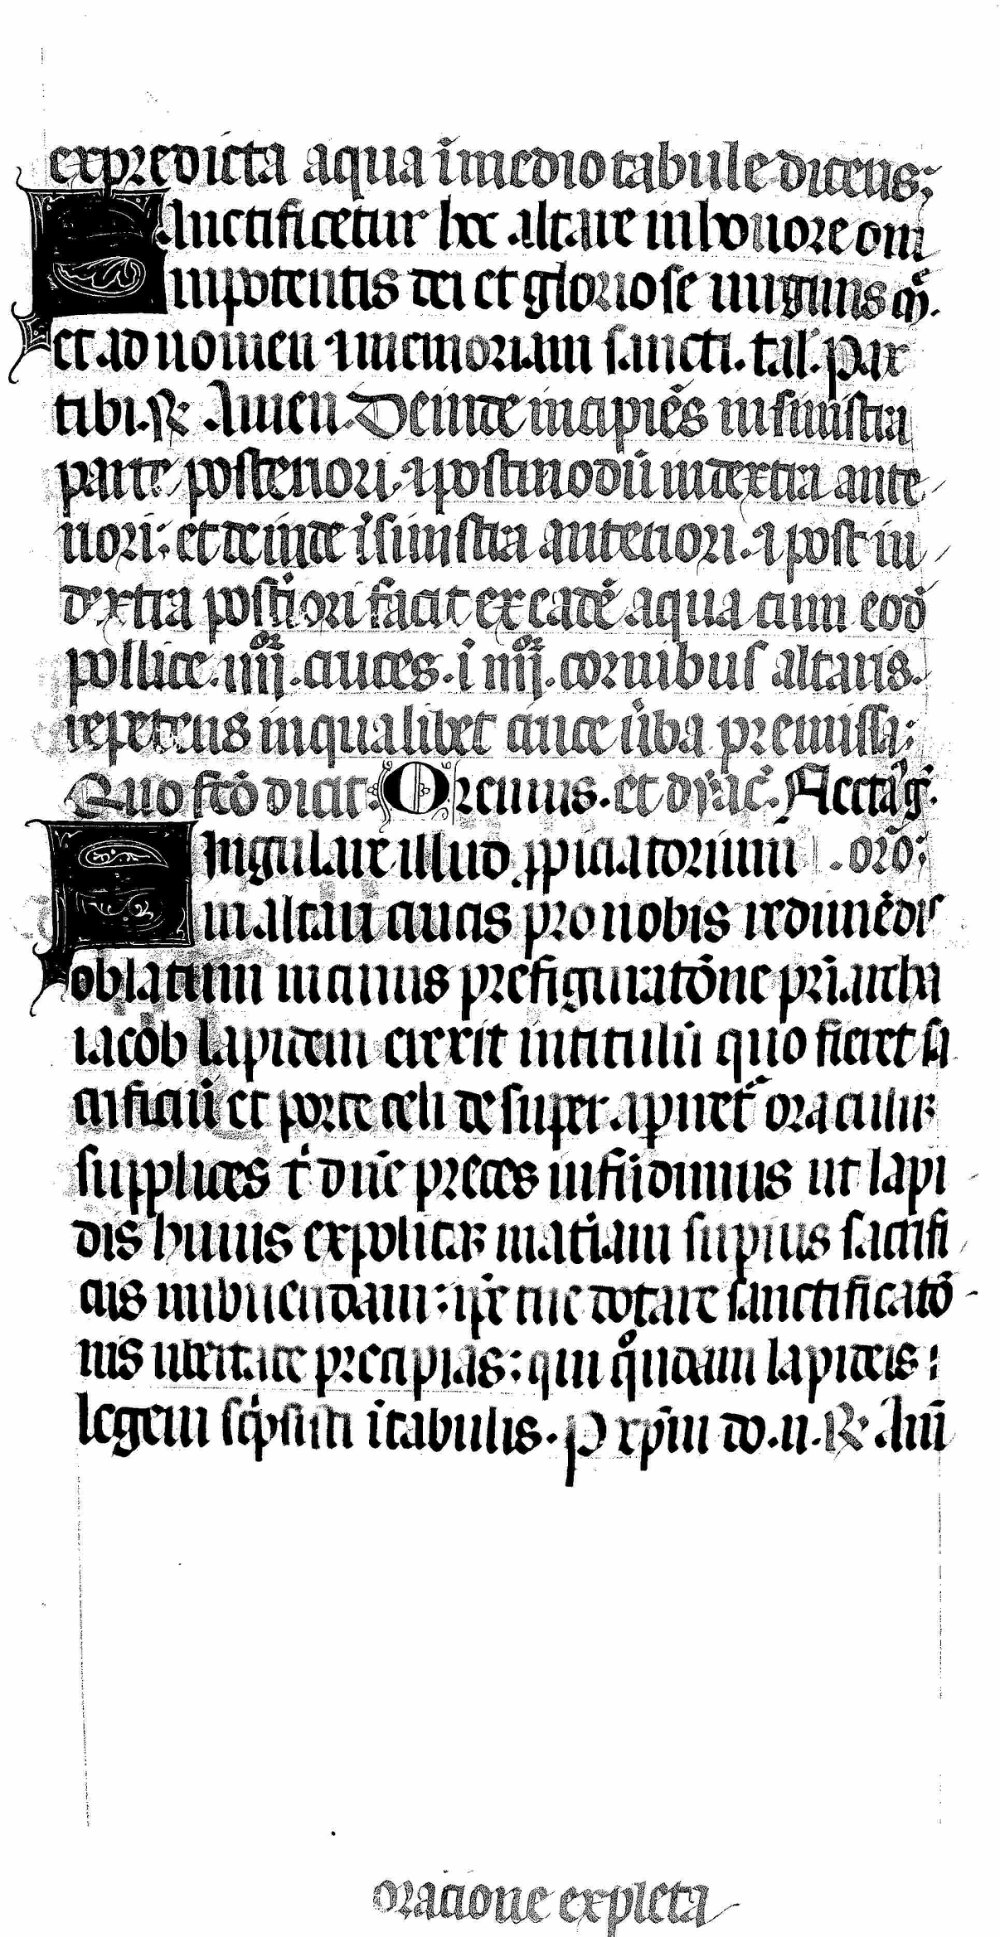 ex predicta aqua ĩ medio tabule dicens;
Sanctificetur hec altare in honore om
nipotentis dei et gloriose uirginis m̃.
et ad nomen ⁊ memoriam sancti. tal'. Pax
tibi. ℟ Amen. Deinde incipiẽs in sinistra
parte posteriori. ⁊ postmodũ in dextra ante
riori; et deinde ĩ sinistra anteriori. ⁊ post in
dextra postiori facit ex eadẽ aqua cum eodẽ
pollice .iiiior. cruces. ĩ iiiior. cornibus altaris.
repetens in qualibet cruce ũba premissa;
Quo fcõ dicit. Oremus. et dyac̃. Flectãg̃.
Singulare illud ꝓpiciatorium . orõ;
in altari crucis pro nobis redimẽdis
oblatum in cuius prefiguratõne pr̃iarcha
iacob lapidem erexit in titulũ quo fieret sa
crificiũ et porte celi desuper apiret̃ oraculum
supplices t' dñe preces infũdimus ut lapi
dis huius expolitam mat'iam supius sacrifi
ciis imbuendam; ip̃e tue dotare sanctificatõ
nis ubertate precipias; qui q°ndam lapideis;
legem sc'psisti ĩ tabulis. P xp̃m do. n. ℟ Am̃
oracione expleta